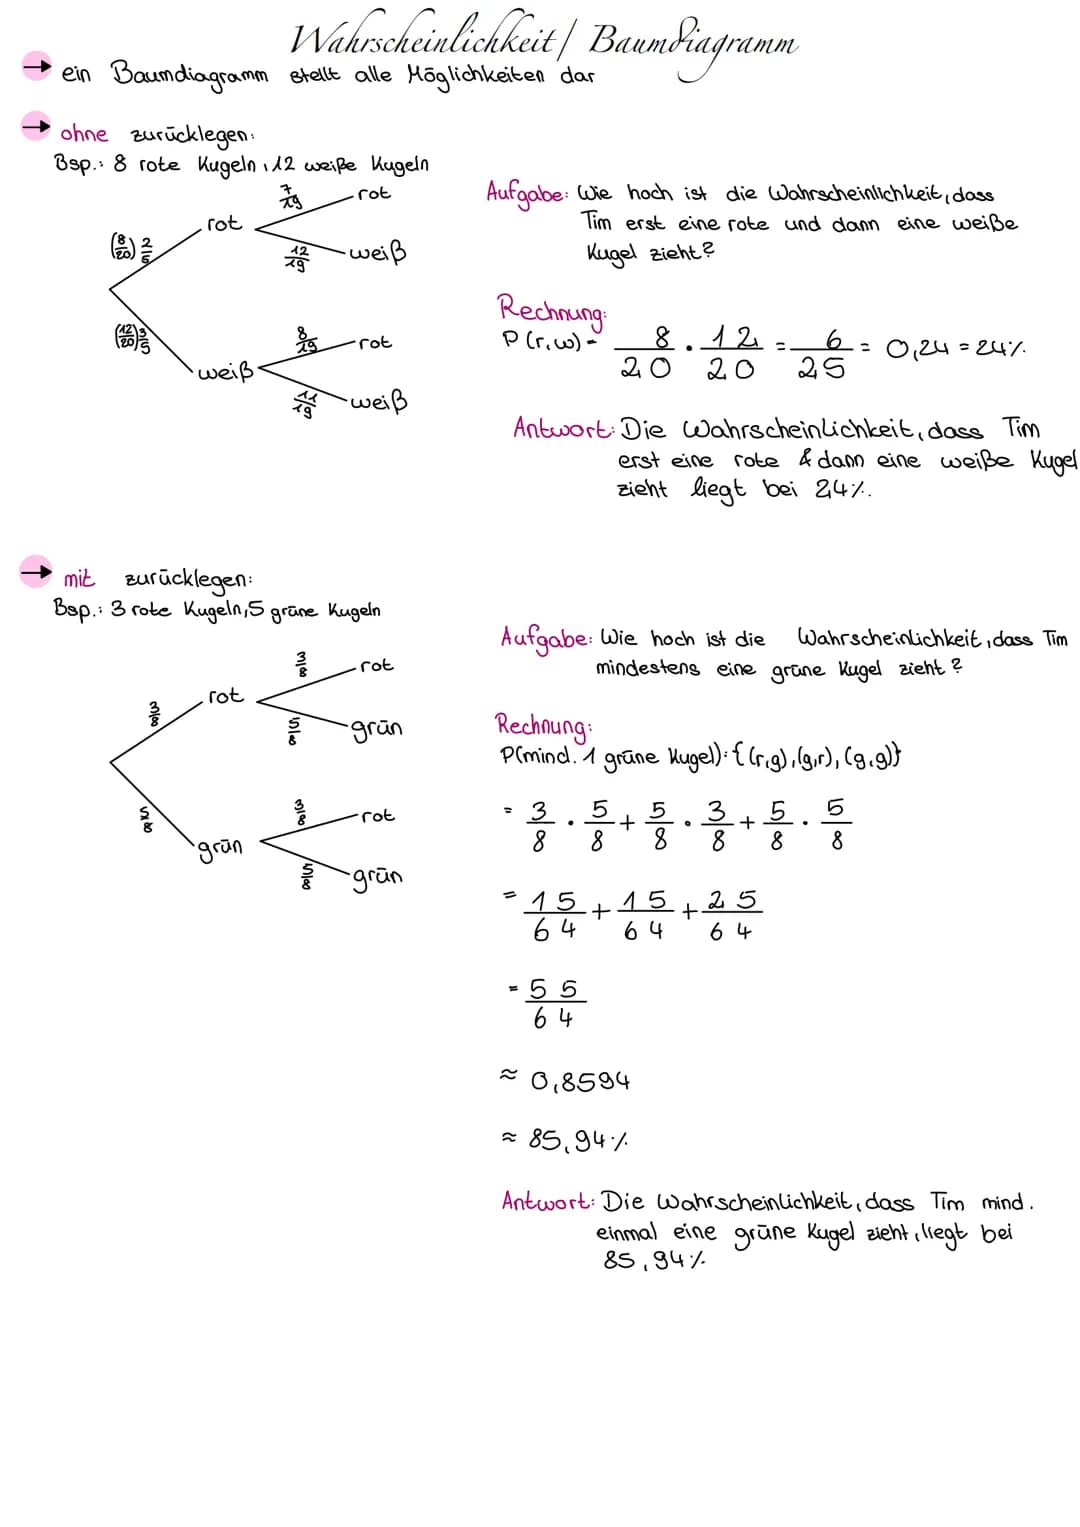 Wahrscheinlichkeit/ Baumdiagramm
→ ein Baumdiagramm stellt alle Möglichkeiten dar
→ ohne zurücklegen:
Bsp.: 8 rote Kugeln, 12 weiße Kugeln
7/19 rot
rot
(8/20) 2/5
12/19 weiß
(12/20) 3/5
8/19 rot
weiß
11/19 weiß
Aufgabe: Wie hoch ist die Wahrscheinlichkeit, dass
Tim erst eine rote und dann eine weiße
Kugel zieht?
Rechnung:
P(r,w) = 8/20 · 12/20 = 6/25 = 0,24 = 24%
Antwort: Die Wahrscheinlichkeit, dass Tim
erst eine rote & dann eine weiße Kugel
zieht liegt bei 24%.
→ mit zurücklegen:
Bsp.: 3 rote Kugeln, 5 grüne Kugeln
3/8 rot
rot
3/8
5/8 grün
5/8
3/8 rot
grün
5/8 grün
Aufgabe: Wie hoch ist die Wahrscheinlichkeit, dass Tim
mindestens eine grüne Kugel zieht?
Rechnung:
P(mind. 1 grüne Kugel): {(r,g), (g,r), (g,g)}
= 3/8 · 5/8 + 5/8 · 3/8 + 5/8 · 5/8
= 15/64 + 15/64 + 25/64
= 55/64
≈ 0,8594
≈ 85,94%
Antwort: Die Wahrscheinlichkeit, dass Tim mind.
einmal eine grüne Kugel zieht, liegt bei
85,94%